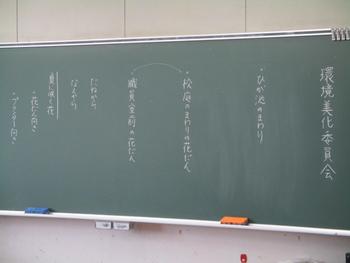 環境美化委員会
・ひが池のまわり
・校庭のまわりの花だん
・職員室前の花だん
たねから
なえから
夏に咲く花
・花だん向き
・プランター向き